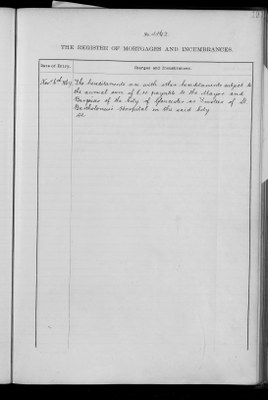 THE REGISTER OF MORTGAGES AND INCUMBRANCES.
Date of Entry.
Charges and Incumbrances.
The hereditaments are with other hereditaments subject to
the annual sum of payable to the Mayor and
Burgesses of the City of Gloucester as Trustees of St
Bartholomews Hospital in the said City